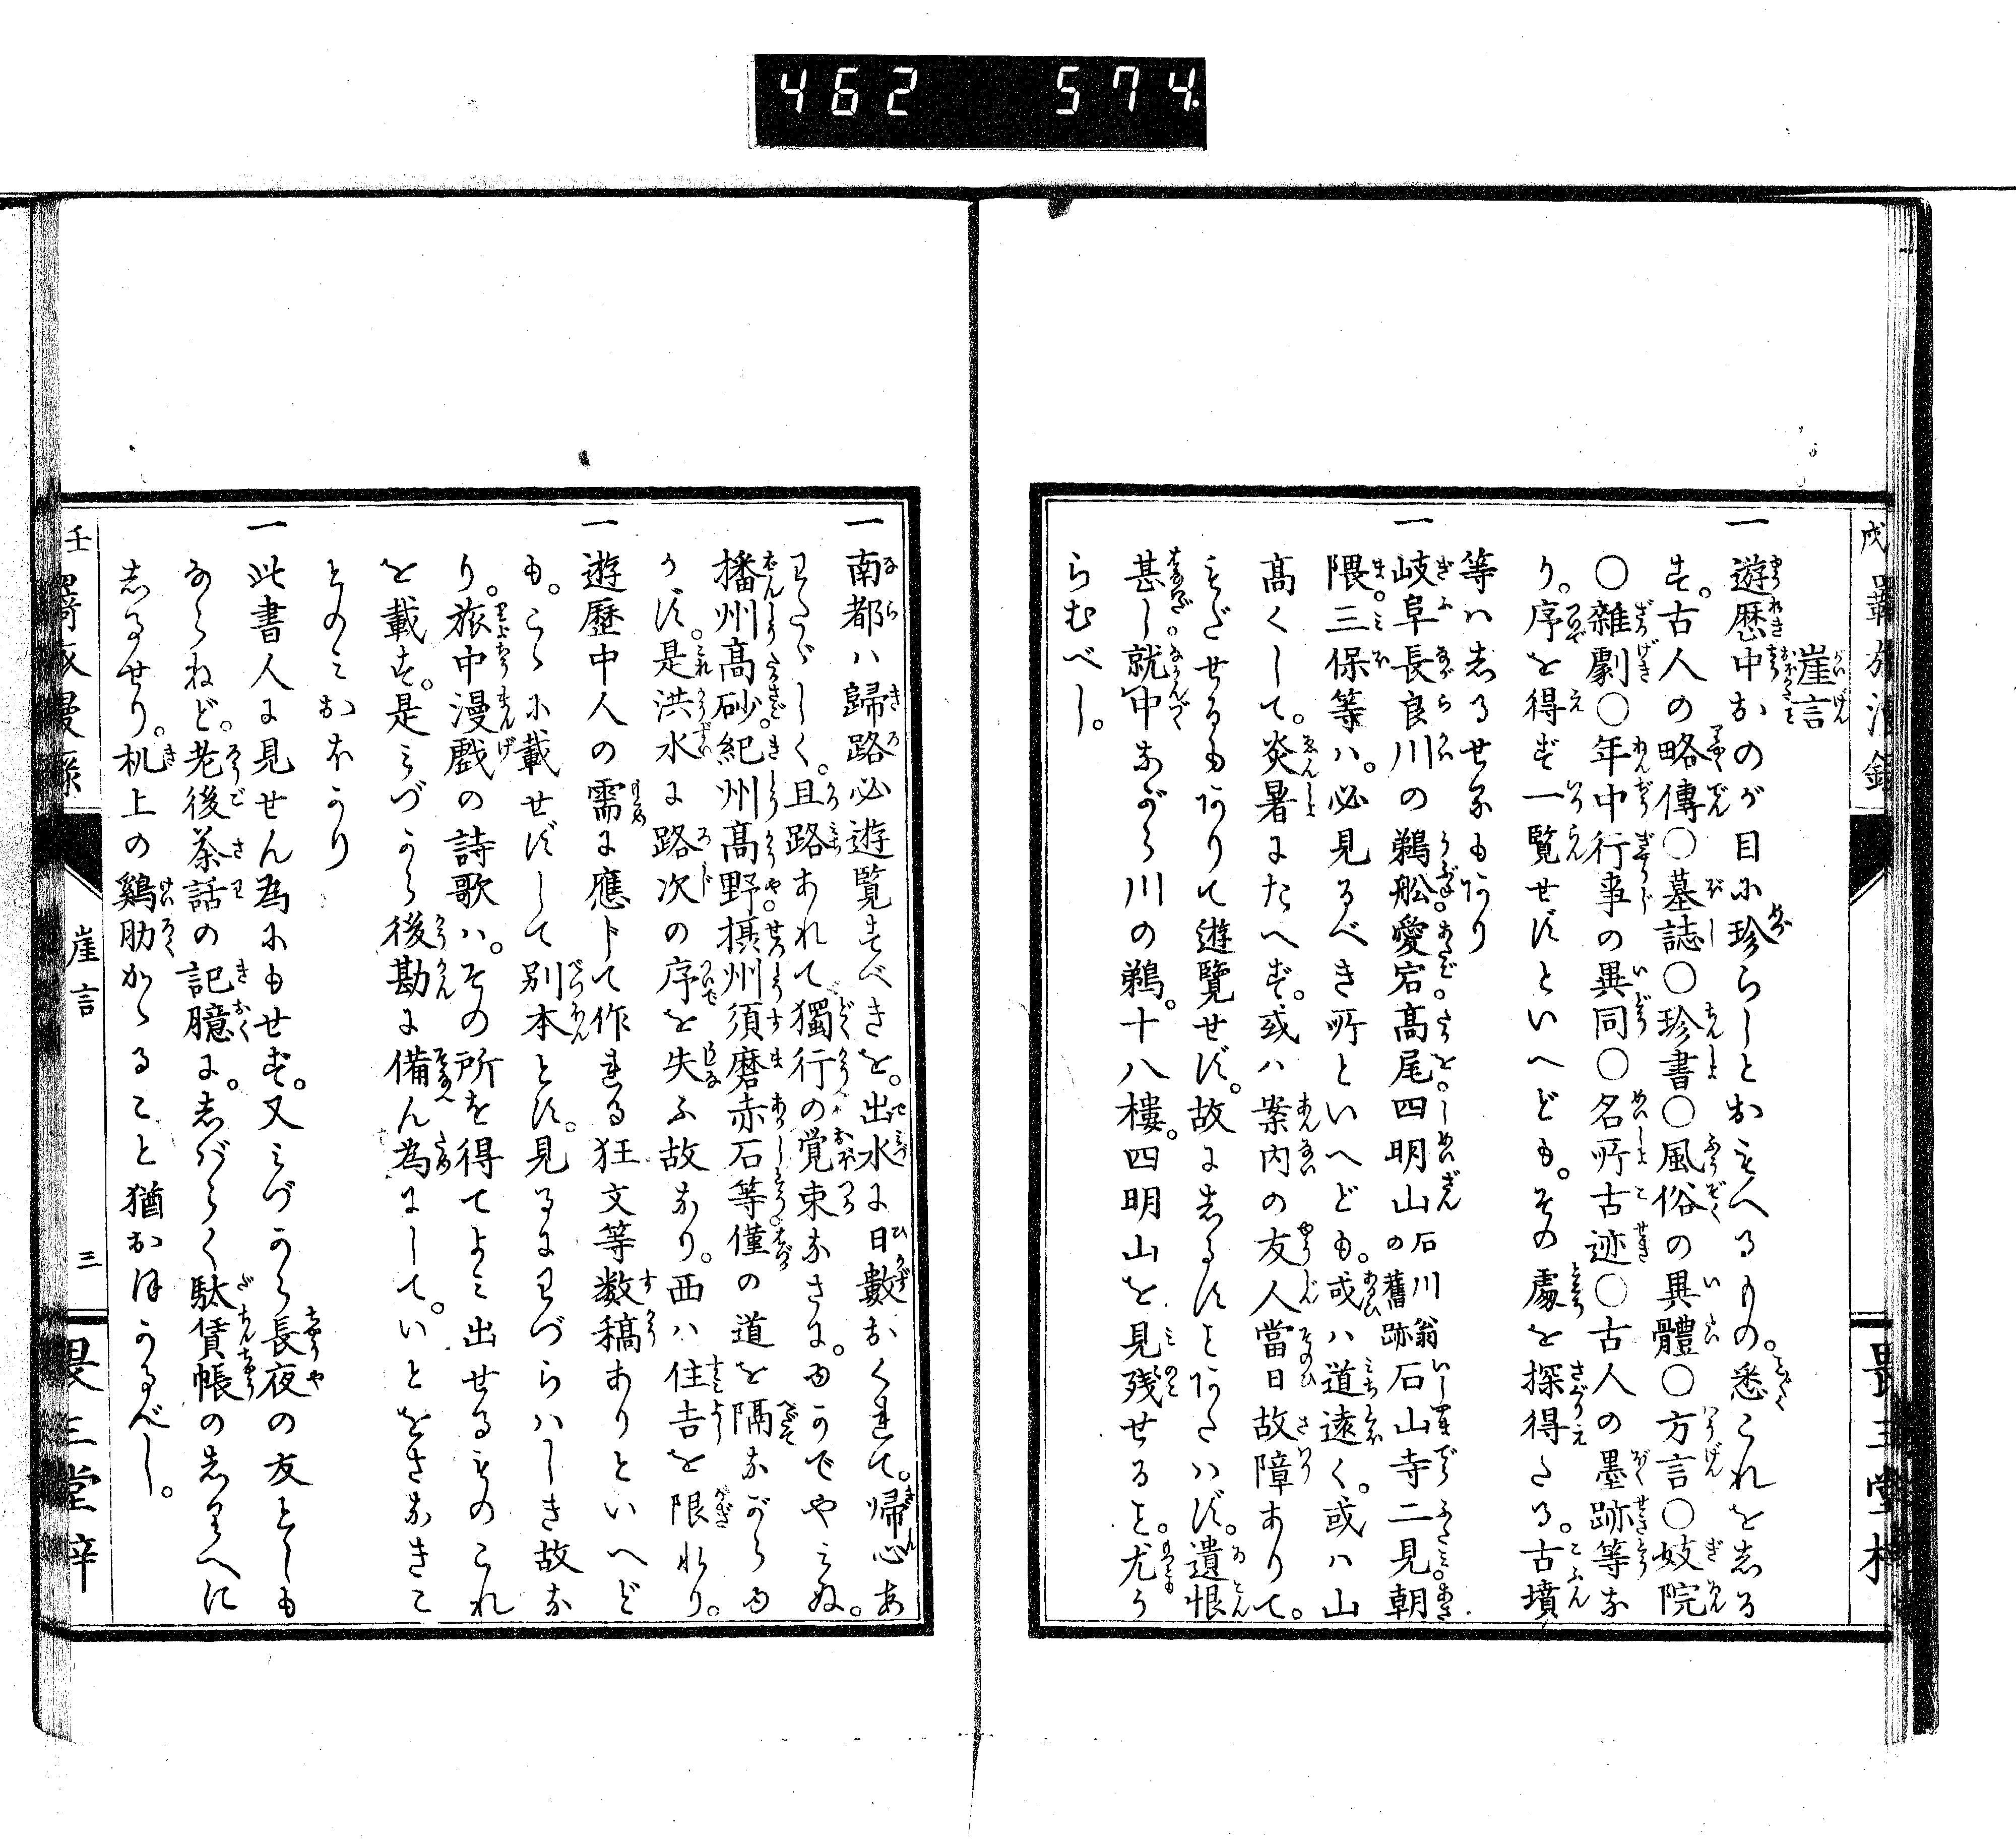 462 574.
崖言
一遊歴中おのが目に珍らしとおもへるもの。悉これをしる
す。古人の略傳○墓誌○珍書○風俗の異體○方言○妓院
○雜劇○年中行事の異同○名所古迹○古人の墨跡等な
り。序を得ず一覧せずといへども。その處を探得たる。古墳
等ハしるせるもあり
一岐阜長良川の鵜舩愛宕高尾四明山石川翁の舊跡石山寺二見朝
隈。三保等ハ。必見るべき所といへども。或ハ道遠く。或ハ山
高くして。炎暑にたへず。或ハ案内の友人當日故障ありて。
もだせるもありて遊覧せず。故にしるすことあたハず。遺恨
甚し就中ながら川の鵜。十八樓。四明山を見残せること。尤う
らむべし。
一南都ハ歸路必遊覧すべきを。出水に日數おくれて。歸心あ
わたゞしく。且路あれて獨行の覚束なさに。ゆかでやミぬ。
播州高砂。紀州高野。摂州須磨赤石等僅の道を隔ながらゆ
かず。是洪水に路次の序を失ふ故なり。西ハ住吉を限れり。
一遊歴中人の需に應じて作れる狂文等数稿ありといへど
も。こゝに載せずして別本とす。見るにわづらハしき故な
り。旅中漫戯の詩歌ハ。その所を得てよミ出せるもののこれ
を載す。是ミづから後勘に備ん為にして。いとをさなきこ
とのミおほかり
一此書人に見せん為にもせず。又ミづから長夜の友としも
あらねど。老後茶話の記臆に。しばらく駄賃帳のしりへに
しるせり。机上の鷄肋かゝること猶おほかるべし。
崖言
三